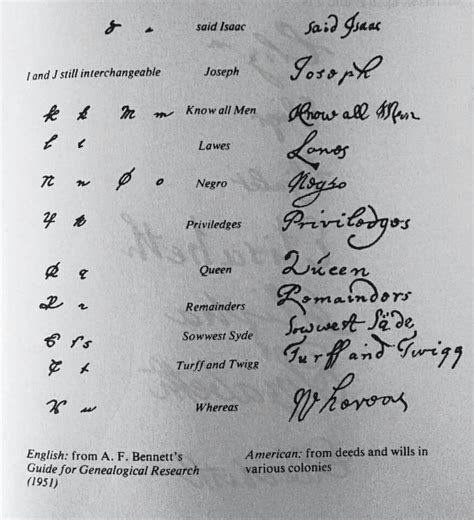 said Isaac said Isaac
I and J still interchangeable Joseph Joseph
k k M m Know all Men Know all Men
L l Lawes Lawes
N n O o Negro Negro
P p Priviledges Priviledges
Q q Queen Queen
R r Remainders Remainders
Sowwest Syde Sowwest Side
T t Turff and Twigg Turff and Twigg
W w Whereas Whereas
English: from A. F. Bennett's
Guide for Genealogical Research
(1951)
American: from deeds and wills in
various colonies